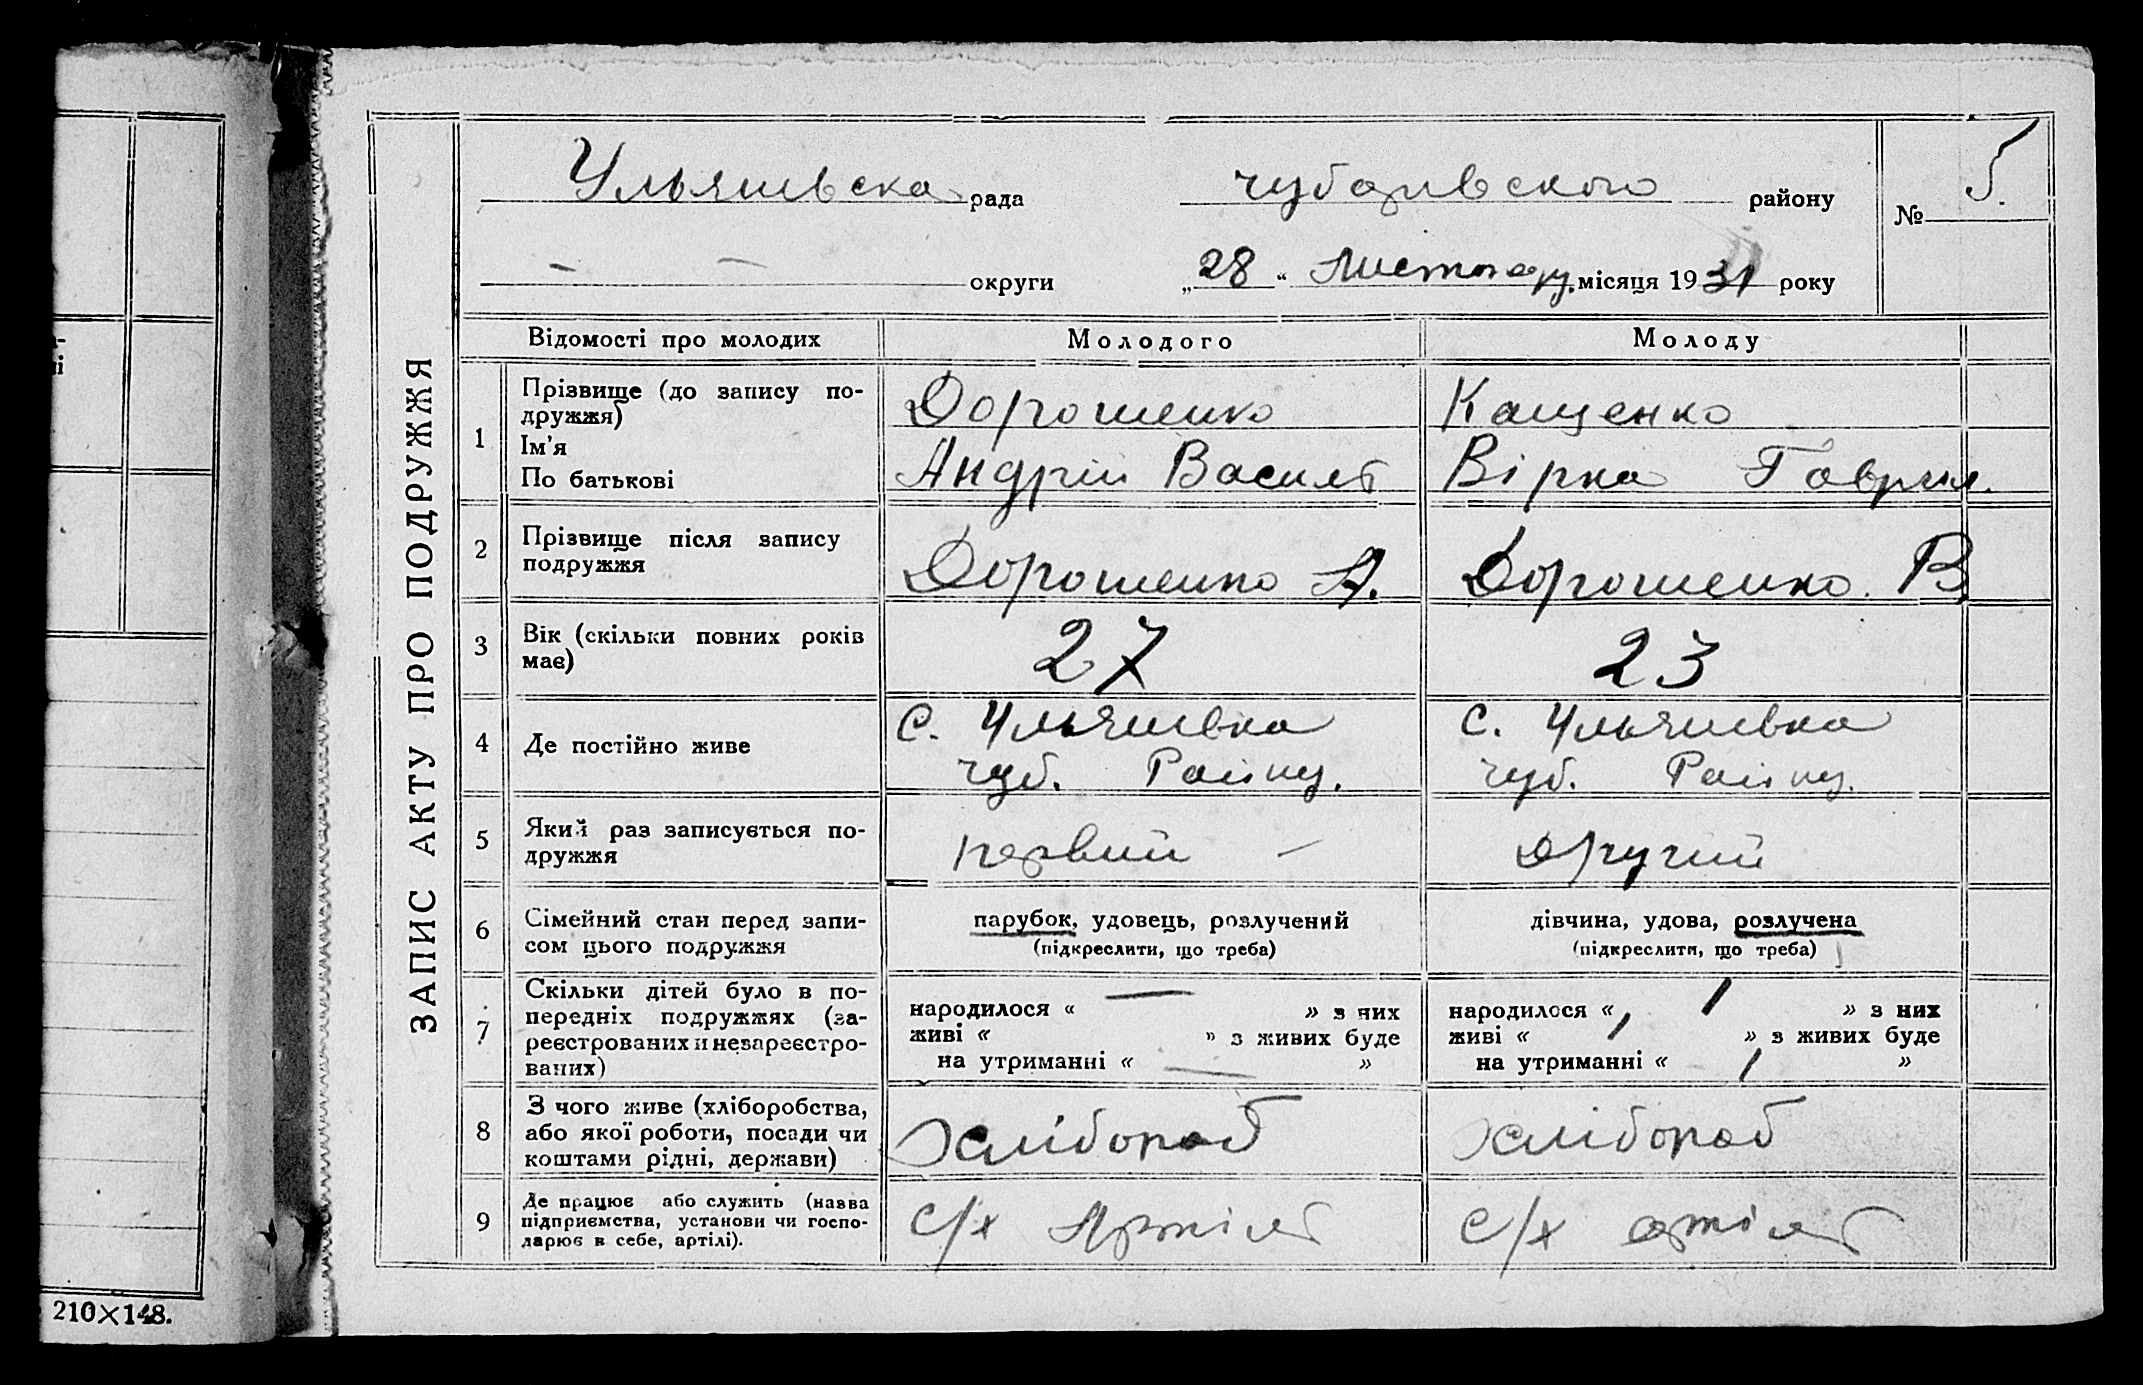 ЗАПИС АКТУ ПРО ПОДРУЖЖЯ
Ульяшівська рада
Чубарівського району
№ 5.
— — округи
„28“ Листопаду. місяця 1931 року
Відомості про молодих
Молодого
Молоду
1
Прізвище (до запису по-
дружжя)
Ім'я
По батькові
Дорошенко
Андрій Василь
Кащенко
Вірка Гаврил.
2
Прізвище після запису
подружжя
Дорошенко А.
Дорошенко. В.
3
Вік (скільки повних років
має)
27
23
4
Де постійно живе
С. Ульяшівка
чуб. Району.
С. Ульяшівка
чуб. Району.
5
Який раз записується по-
дружжя
первий —
другий
6
Сімейний стан перед запи-
сом цього подружжя
парубок, удовець, розлучений
(підкреслити, що треба)
дівчина, удова, розлучена
(підкреслити, що треба)
7
Скільки дітей було в по-
передніх подружжях (за-
реєстрованих и незареєстро-
ваних)
народилося « — » з них
живі « » з живих буде
на утриманні « — »
народилося « 1 » з них
живі « 1 » з живих буде
на утриманні « 1 »
8
З чого живе (хліборобства,
або якої роботи, посади чи
коштами рідні, держави)
Хлібороб
Хлібороб
9
Де працює або служить (назва
підприємства, установи чи госпо-
дарює в себе, артілі).
С/х Артіль
С/х артіль
210×148.